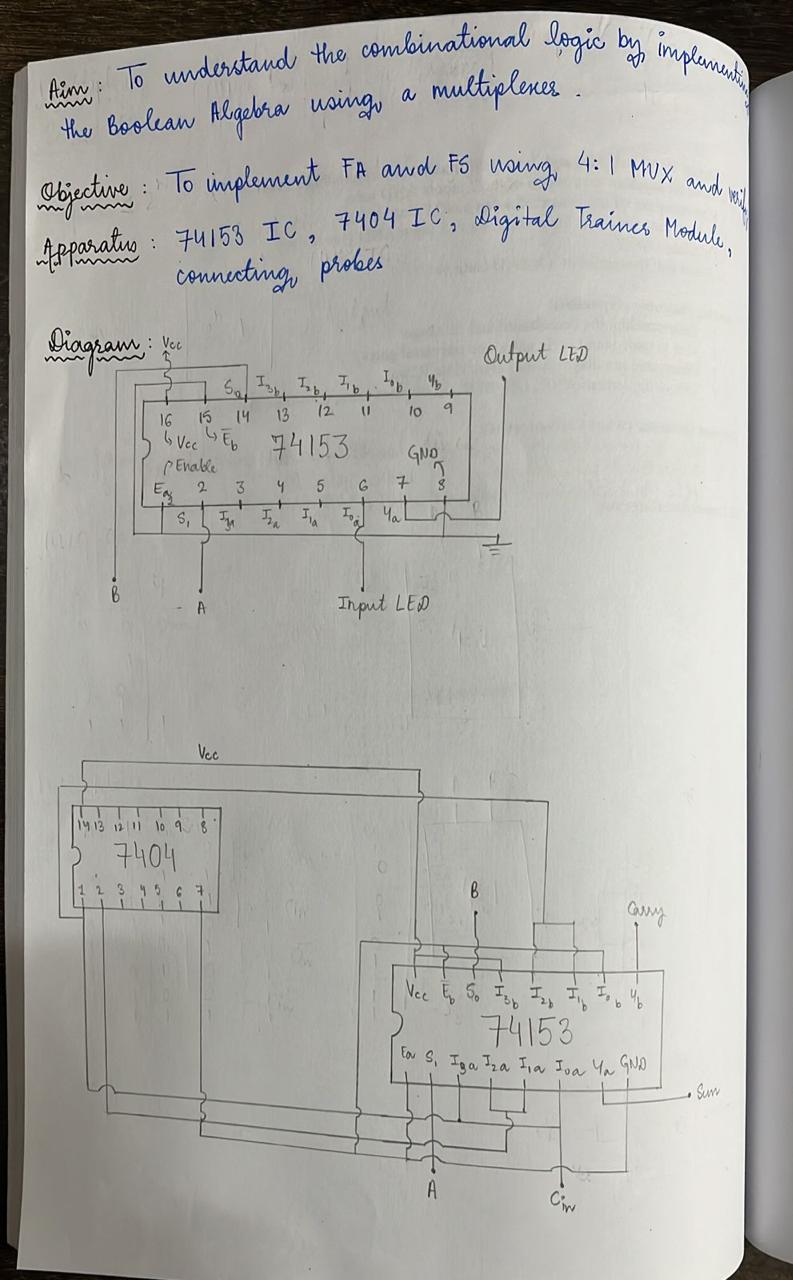 Aim : To understand the combinational logic by implementing
the Boolean Algebra using a multiplexer .
Objective : To implement FA and FS using 4:1 MUX and verify
Apparatus : 74153 IC , 7404 IC , Digital Trainer Module,
connecting probes
Diagram : Vcc
Output LED
S₀ I₃b I₂b I₁b I₀b Yb
16 15 14 13 12 11 10 9
↳ Vcc ↳ E̅b 74153 GND
Enable
Ea 2 3 4 5 6 7 8
S₁ I₃a I₂a I₁a I₀a Ya
B
A Input LED
Vcc
14 13 12 11 10 9 8
7404
1 2 3 4 5 6 7
B
Carry
Vcc E̅b S₀ I₃b I₂b I₁b I₀b Yb
74153
Ea S₁ I₃a I₂a I₁a I₀a Ya GND
Sum
A
Cin